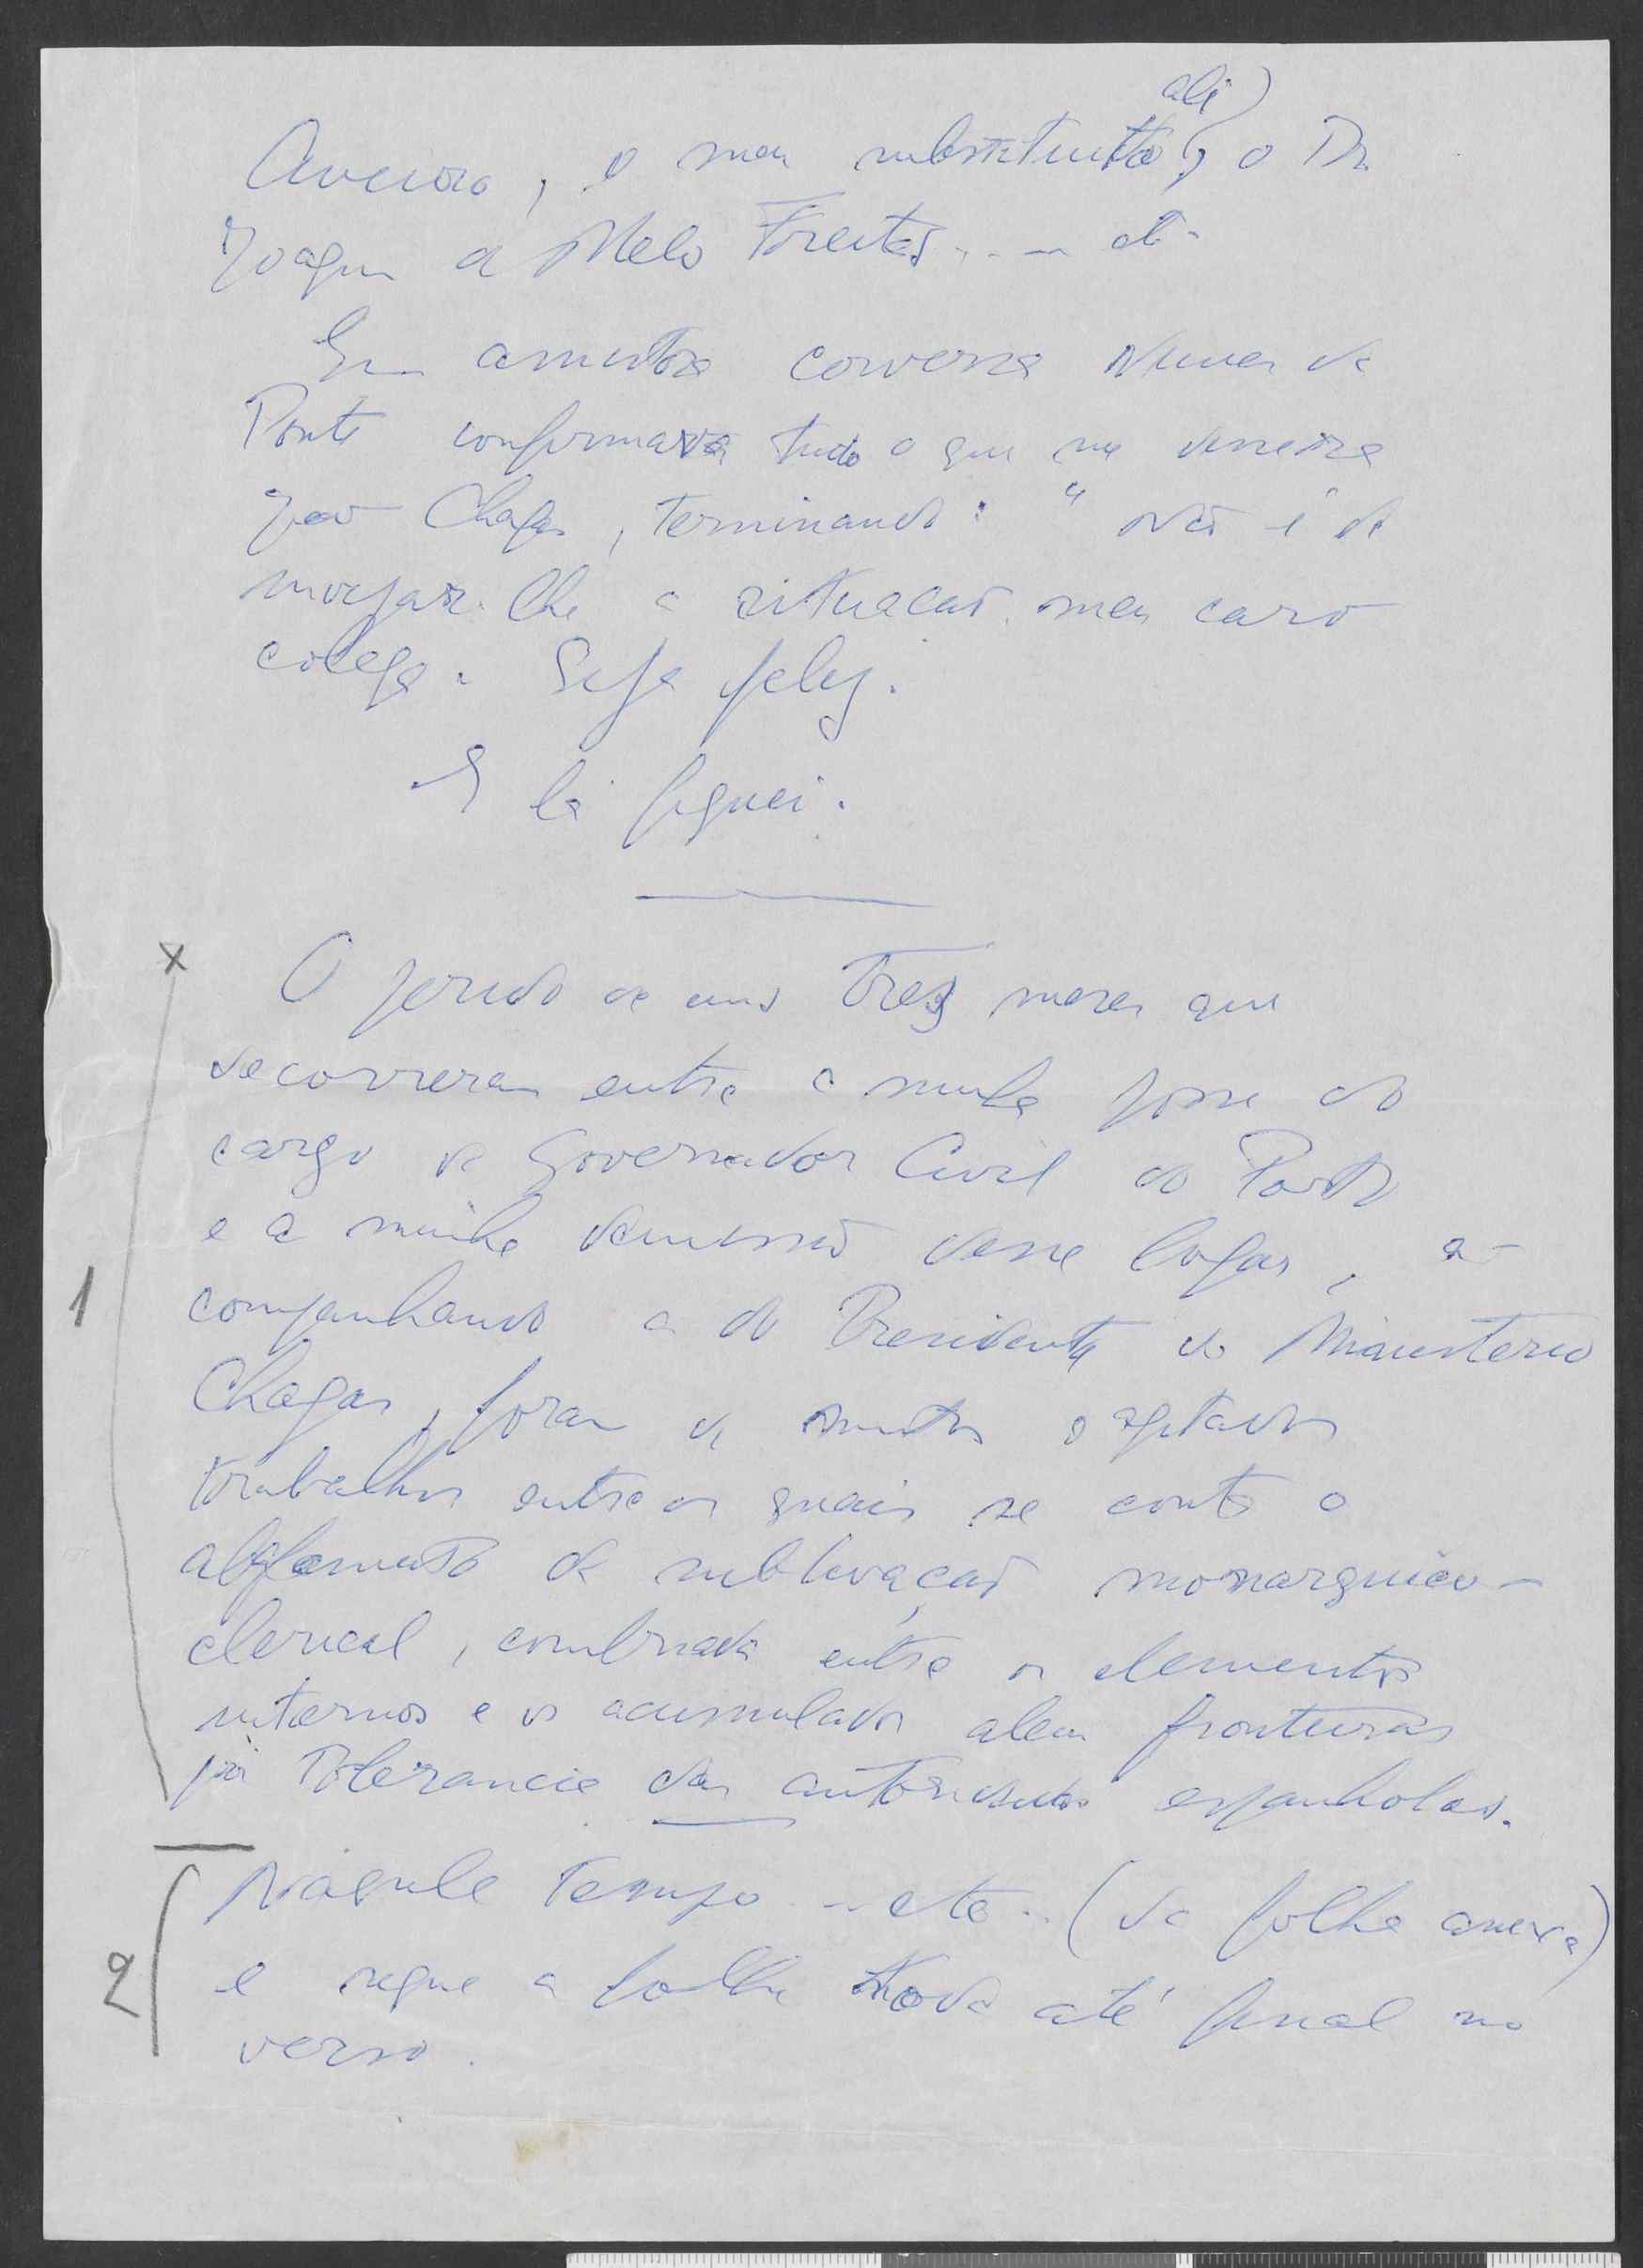 ali)
Aveiro, o meu substituto, o Dr.
Joaquim de Melo Freitas... etc.
Em amistosa conversa Nunes da
Ponte confirmava tudo o que me dissera
João Chagas, terminando: "não é de
invejar-lhe a situação, meu caro
colega. Seja feliz.
E lá fiquei.
X
O periodo de uns tres meses que
decorreram entre a minha posse do
cargo de Governador Civil do Porto
e a minha demissão desse logar, a-
1
companhando a do Presidente do Ministerio
Chagas, foram de muitos e agitados
trabalhos entre os quais se conta o
da sublevação monarquico-
clerical, combinada entre os elementos
internos e os acumulados alem fronteiras
por tolerancia das autoridades espanholas.
Naquele tempo ... etc.. (da folha anexa)
2
e segue a folha toda até final no
verso.